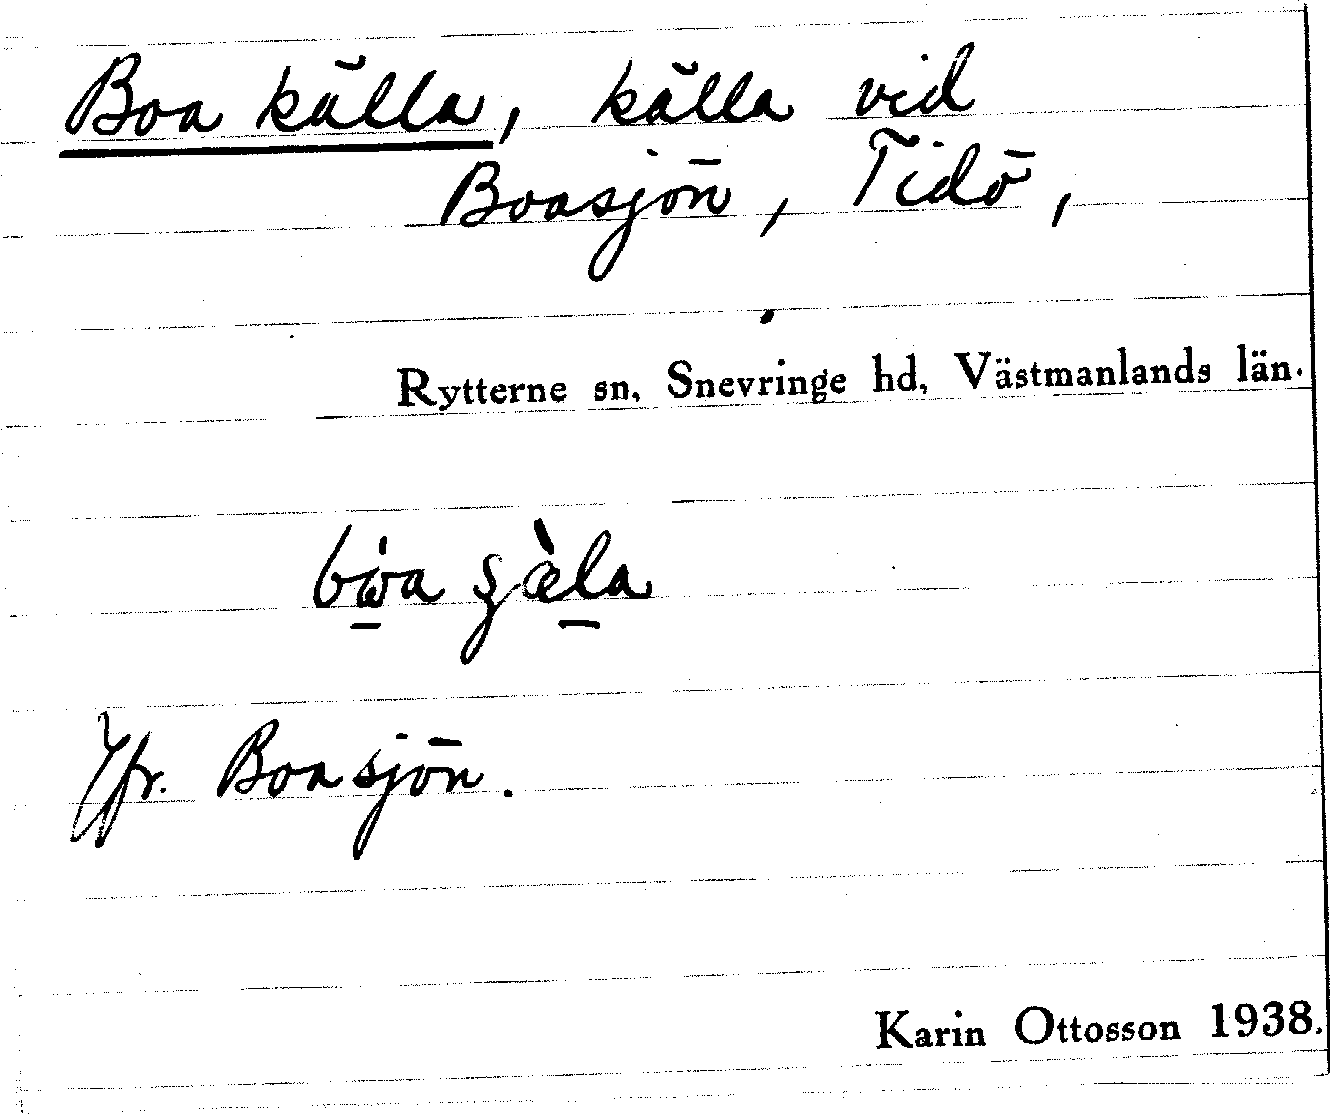 Boa källa, källa vid
Boasjön, Tidö,
Rytterne sn, Snevringe hd, Västmanlands län.
Jfr. Boasjön.
Karin Ottosson 1938.